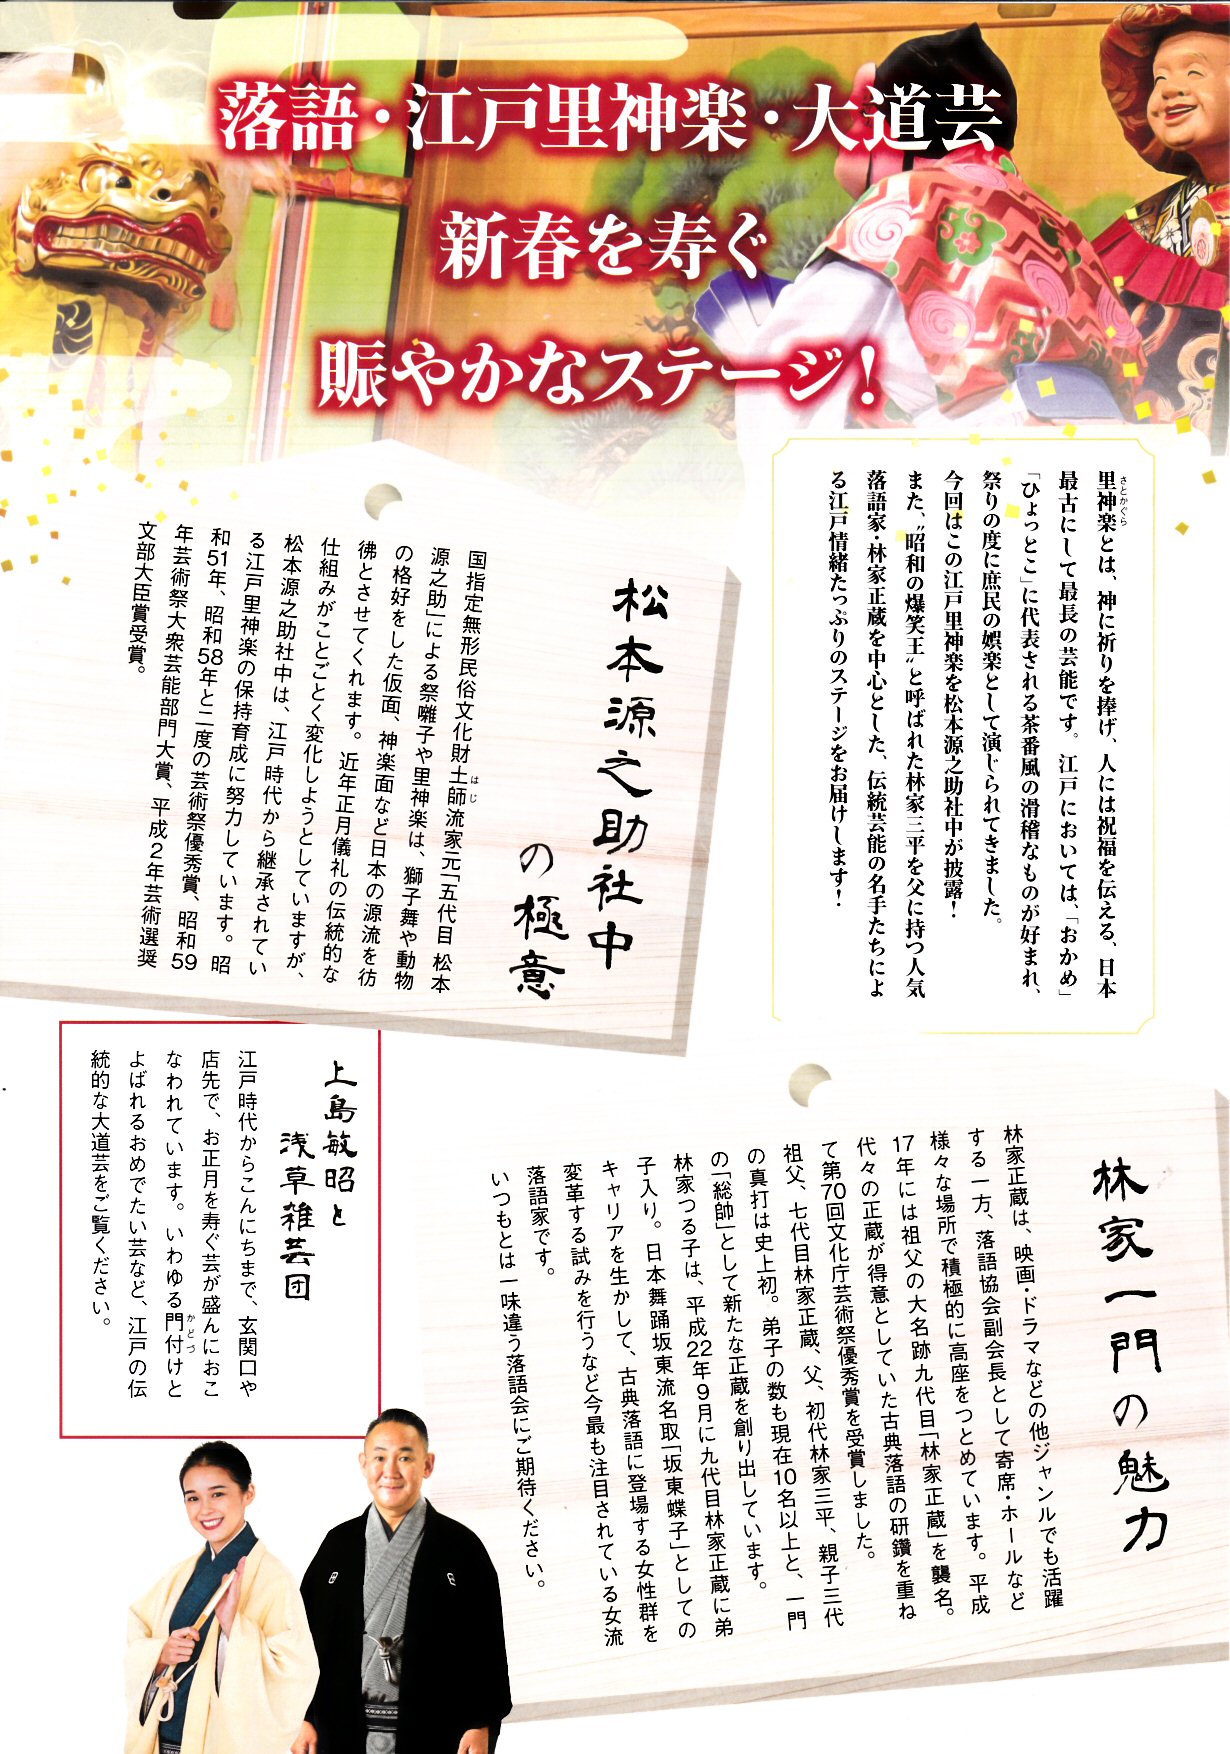 落語・江戸里神楽・大道芸
新春を寿ぐ
賑やかなステージ！
里神楽とは、神に祈りを捧げ、人には祝福を伝える、日本
さとかぐら
最古にして最長の芸能です。江戸においては、「おかめ」
「ひょっとこ」に代表される茶番風の滑稽なものが好まれ、
祭りの度に庶民の娯楽として演じられてきました。
今回はこの江戸里神楽を松本源之助社中が披露！
また、〝昭和の爆笑王〟と呼ばれた林家三平を父に持つ人気
落語家・林家正蔵を中心とした、伝統芸能の名手たちによ
る江戸情緒たっぷりのステージをお届けします！
松本源之助社中
の極意
国指定無形民俗文化財土師流家元「五代目 松本
はじ
源之助」による祭囃子や里神楽は、獅子舞や動物
の格好をした仮面、神楽面など日本の源流を彷
彿とさせてくれます。近年正月儀礼の伝統的な
仕組みがことごとく変化しようとしていますが、
松本源之助社中は、江戸時代から継承されてい
る江戸里神楽の保持育成に努力しています。昭
和51年、昭和58年と二度の芸術祭優秀賞、昭和59
年芸術祭大衆芸能部門大賞、平成2年芸術選奨
文部大臣賞受賞。
林家一門の魅力
林家正蔵は、映画・ドラマなどの他ジャンルでも活躍
する一方、落語協会副会長として寄席・ホールなど
様々な場所で積極的に高座をつとめています。平成
17年には祖父の大名跡九代目「林家正蔵」を襲名。
代々の正蔵が得意としていた古典落語の研鑽を重ね
て第70回文化庁芸術祭優秀賞を受賞しました。
祖父、七代目林家正蔵、父、初代林家三平、親子三代
の真打は史上初。弟子の数も現在10名以上と、一門
の「総帥」として新たな正蔵を創り出しています。
林家つる子は、平成22年9月に九代目林家正蔵に弟
子入り。日本舞踊坂東流名取「坂東蝶子」としての
キャリアを生かして、古典落語に登場する女性群を
変革する試みを行うなど今最も注目されている女流
落語家です。
いつもとは一味違う落語会にご期待ください。
上島敏昭と
浅草雑芸団
江戸時代からこんにちまで、玄関口や
店先で、お正月を寿ぐ芸が盛んにおこ
なわれています。いわゆる門付けと
かどづ
よばれるおめでたい芸など、江戸の伝
統的な大道芸をご覧ください。